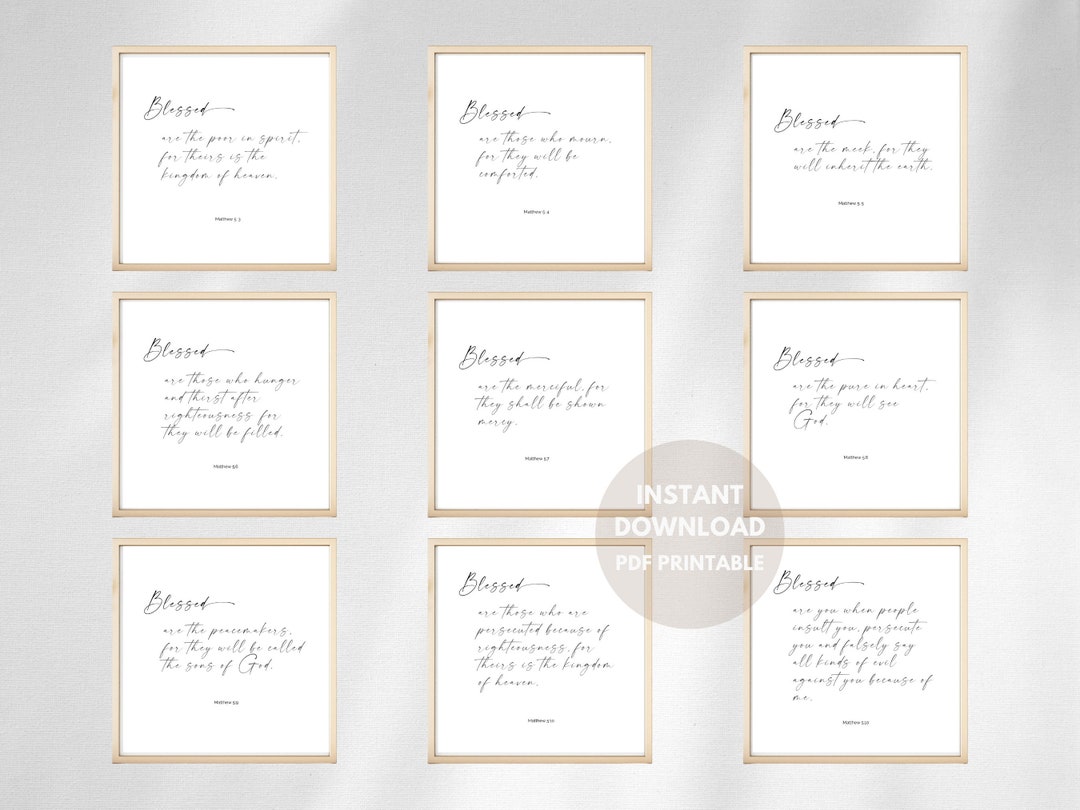 Blessed
are the poor in spirit,
for theirs is the
kingdom of heaven.
Matthew 5:3
Blessed
are those who mourn,
for they will be
comforted.
Matthew 5:4
Blessed
are the meek, for they
will inherit the earth.
Matthew 5:5
Blessed
are those who hunger
and thirst after
righteousness for
they will be filled.
Matthew 5:6
Blessed
are the merciful, for
they shall be shown
mercy.
Matthew 5:7
Blessed
are the pure in heart,
for they will see
God.
Matthew 5:8
INSTANT
DOWNLOAD
PDF PRINTABLE
Blessed
are the peacemakers,
for they will be called
the sons of God.
Matthew 5:9
Blessed
are those who are
persecuted because of
righteousness, for
theirs is the kingdom
of heaven.
Matthew 5:10
Blessed
are you when people
insult you, persecute
you and falsely say
all kinds of evil
against you because of
me.
Matthew 5:10